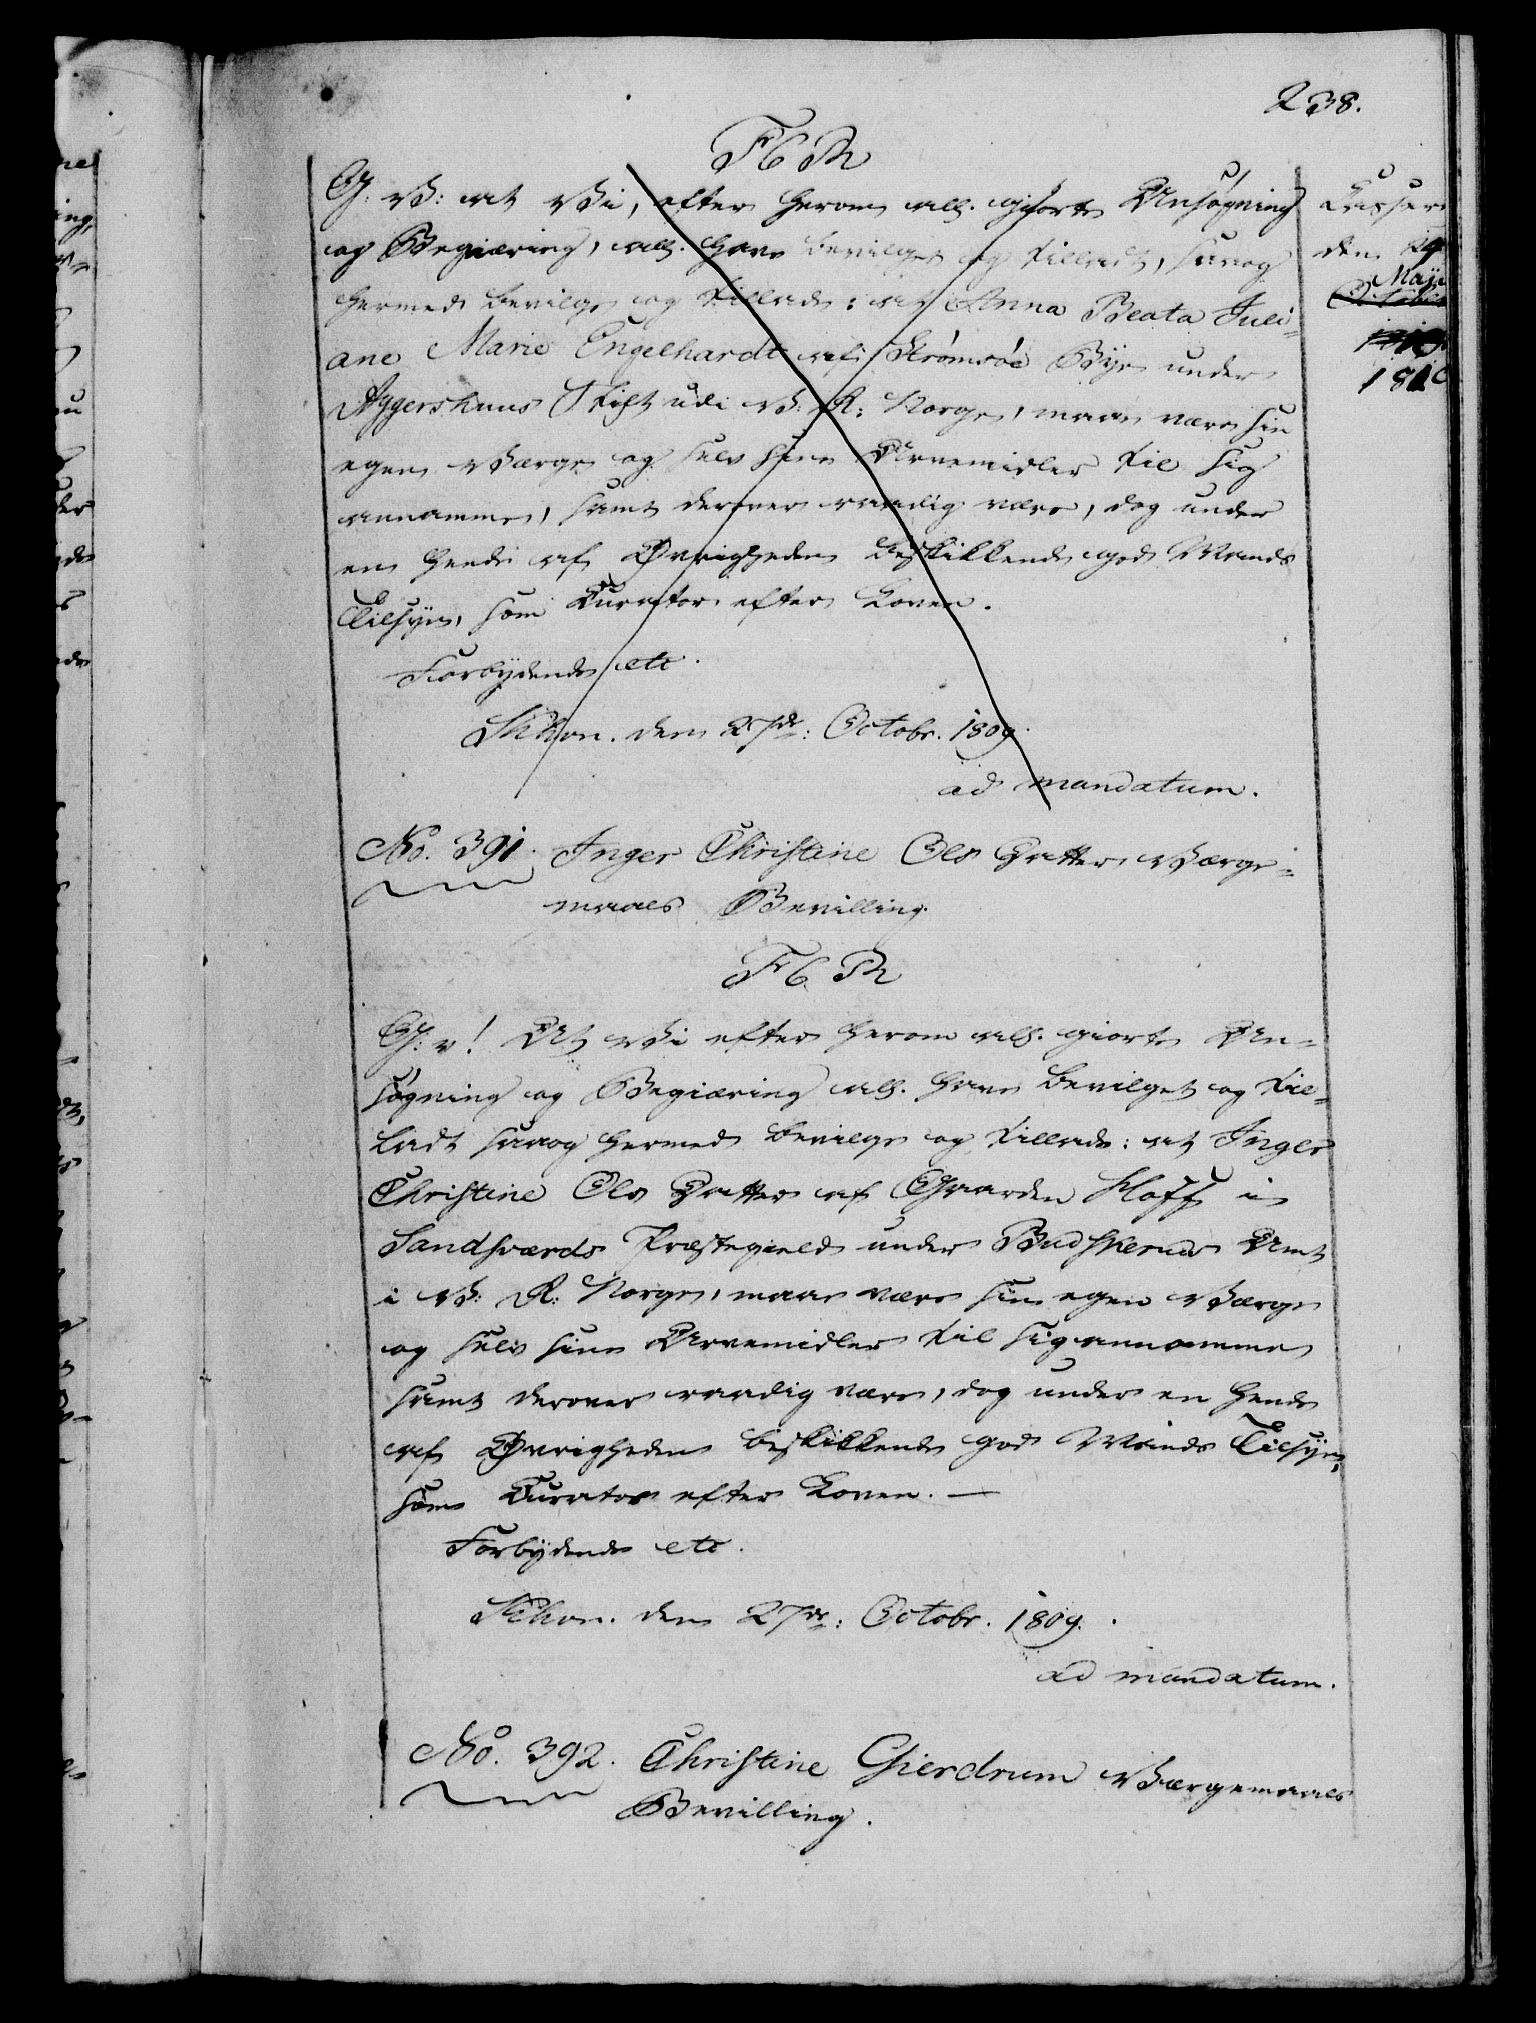 238.
F6R
G: V: at Vi, efter herom all. giorte Ansøgning
og Begiæring, all. have bevilget og tilladt, saa og
hermed bevilge og tillade: at Anna Beata Juli-
ane Marie Engelhardt af Strømsöe Bÿe under
Aggershuus Stift udi V: R: Norge, maae være sin
egen Værge og selv sine Arvemidler til sig
annamme, samt derover raadig være, dog under
en hende af Øvrigheden beskikkende god Mands
Tilsÿn, som Curator efter Loven.
Forbÿdende etc.
Khvn. den 27de: Octobr. 1809.
ad mandatum.
Casser
den 19
Maji
1810
No. 391. Inger Christine Ols Datter Værge-
maals Bevilling.
F6R
G: v! At Vi efter herom all. giorte An-
søgning og Begiæring all. have bevilget og til-
ladt saa og hermed bevilge og tillade: at Inger
Christine Ols Datter af Gaarden Hoff i
Sandsværds Præstegield under Budskeruds Amt
i V: R: Norge, maae være sin egen Værge
og selv sine Arvemidler til sig annamme
samt derover raadig være, dog under en hende
af Øvrigheden beskikkende god Mands Tilsÿn,
som Curator efter Loven. —
Forbÿdende etc.
Khvn. den 27de: Octobr. 1809.
ad mandatum.
No. 392. Christine Gierdrum Værgemaals
Bevilling.